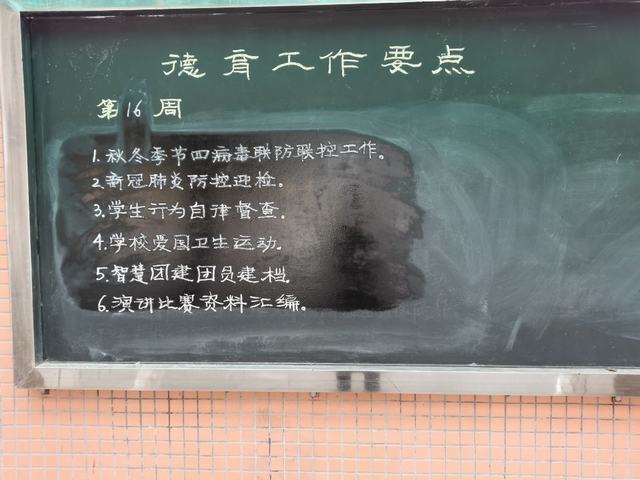 德育工作要点
第16周
1.秋冬季节四病毒联防联控工作。
2.新冠肺炎防控迎检。
3.学生行为自律督查.
4.学校爱国卫生运动.
5.智慧团建团员建档.
6.演讲比赛资料汇编。